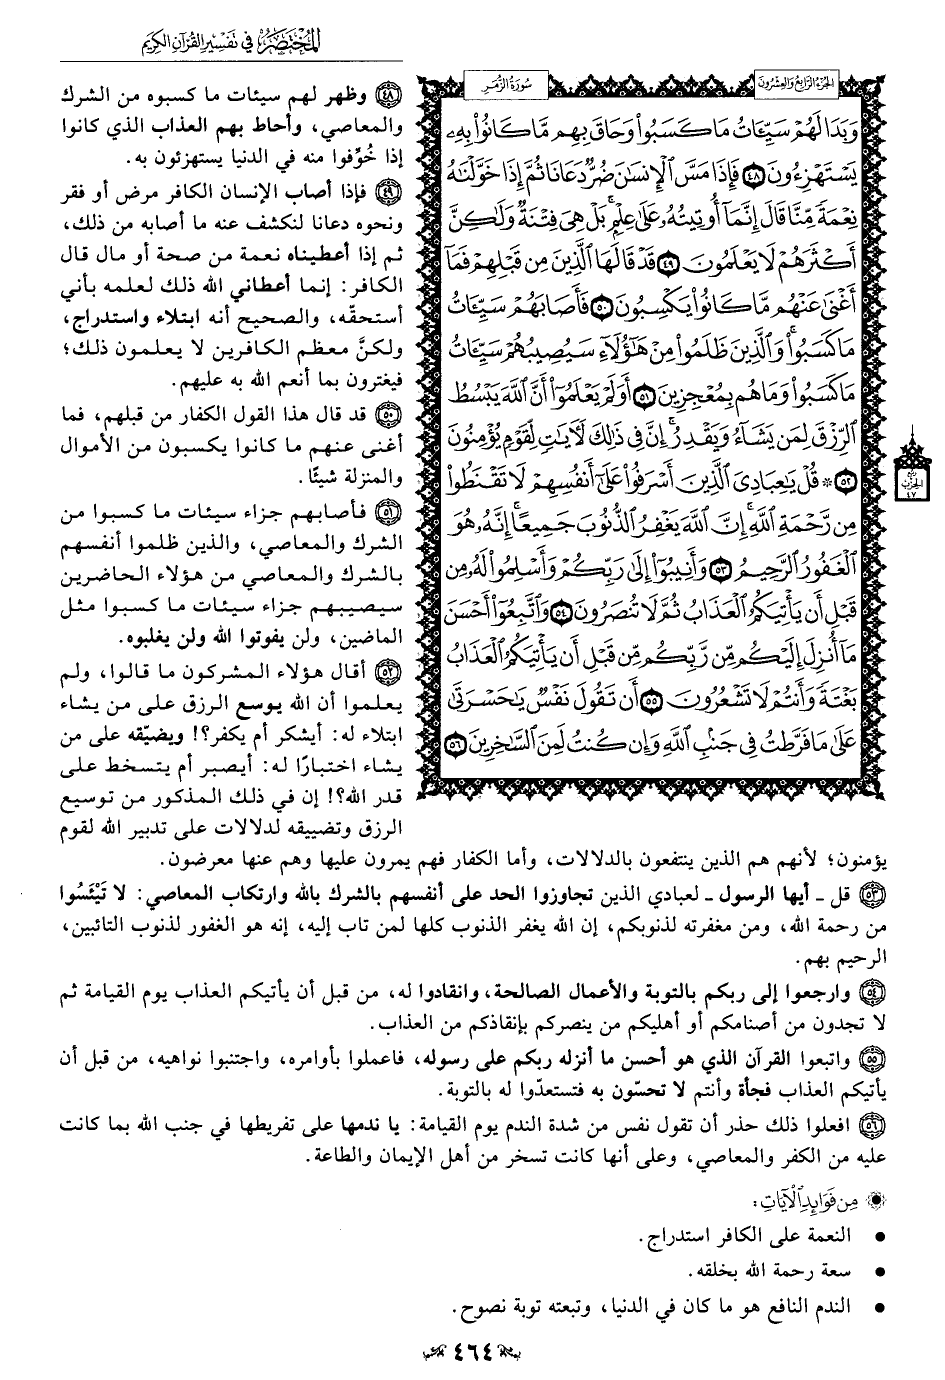 المختصر في تفسير القرآن الكريم
الجزء الرابع والعشرون
سورة الزمر
وَبَدَا لَهُمْ سَيِّـَٔاتُ مَا كَسَبُوا۟ وَحَاقَ بِهِم مَّا كَانُوا۟ بِهِۦ
يَسْتَهْزِءُونَ ٤٨ فَإِذَا مَسَّ ٱلْإِنسَـٰنَ ضُرٌّ دَعَانَا ثُمَّ إِذَا خَوَّلْنَـٰهُ
نِعْمَةً مِّنَّا قَالَ إِنَّمَآ أُوتِيتُهُۥ عَلَىٰ عِلْمٍۭ ۚ بَلْ هِىَ فِتْنَةٌ وَلَـٰكِنَّ
أَكْثَرَهُمْ لَا يَعْلَمُونَ ٤٩ قَدْ قَالَهَا ٱلَّذِينَ مِن قَبْلِهِمْ فَمَآ
أَغْنَىٰ عَنْهُم مَّا كَانُوا۟ يَكْسِبُونَ ٥٠ فَأَصَابَهُمْ سَيِّـَٔاتُ
مَا كَسَبُوا۟ ۚ وَٱلَّذِينَ ظَلَمُوا۟ مِنْ هَـٰٓؤُلَآءِ سَيُصِيبُهُمْ سَيِّـَٔاتُ
مَا كَسَبُوا۟ وَمَا هُم بِمُعْجِزِينَ ٥١ أَوَلَمْ يَعْلَمُوٓا۟ أَنَّ ٱللَّهَ يَبْسُطُ
ٱلرِّزْقَ لِمَن يَشَآءُ وَيَقْدِرُ ۚ إِنَّ فِى ذَٰلِكَ لَـَٔايَـٰتٍ لِّقَوْمٍ يُؤْمِنُونَ
٥٢ ۞ قُلْ يَـٰعِبَادِىَ ٱلَّذِينَ أَسْرَفُوا۟ عَلَىٰٓ أَنفُسِهِمْ لَا تَقْنَطُوا۟
مِن رَّحْمَةِ ٱللَّهِ ۚ إِنَّ ٱللَّهَ يَغْفِرُ ٱلذُّنُوبَ جَمِيعًا ۚ إِنَّهُۥ هُوَ
ٱلْغَفُورُ ٱلرَّحِيمُ ٥٣ وَأَنِيبُوٓا۟ إِلَىٰ رَبِّكُمْ وَأَسْلِمُوا۟ لَهُۥ مِن
قَبْلِ أَن يَأْتِيَكُمُ ٱلْعَذَابُ ثُمَّ لَا تُنصَرُونَ ٥٤ وَٱتَّبِعُوٓا۟ أَحْسَنَ
مَآ أُنزِلَ إِلَيْكُم مِّن رَّبِّكُم مِّن قَبْلِ أَن يَأْتِيَكُمُ ٱلْعَذَابُ
بَغْتَةً وَأَنتُمْ لَا تَشْعُرُونَ ٥٥ أَن تَقُولَ نَفْسٌ يَـٰحَسْرَتَىٰ
عَلَىٰ مَا فَرَّطتُ فِى جَنۢبِ ٱللَّهِ وَإِن كُنتُ لَمِنَ ٱلسَّـٰخِرِينَ ٥٦
ربع
الحزب
٤٧
٤٨ وظهر لهم سيئات ما كسبوه من الشرك
والمعاصي، وأحاط بهم العذاب الذي كانوا
إذا خُوِّفوا منه في الدنيا يستهزئون به.
٤٩ فإذا أصاب الإنسان الكافر مرض أو فقر
ونحوه دعانا لنكشف عنه ما أصابه من ذلك،
ثم إذا أعطيناه نعمة من صحة أو مال قال
الكافر: إنما أعطاني الله ذلك لعلمه بأني
أستحقّه، والصحيح أنه ابتلاء واستدراج،
ولكنَّ معظم الكافرين لا يعلمون ذلك؛
فيغترون بما أنعم الله به عليهم.
٥٠ قد قال هذا القول الكفار من قبلهم، فما
أغنى عنهم ما كانوا يكسبون من الأموال
والمنزلة شيئًا.
٥١ فأصابهم جزاء سيئات ما كسبوا من
الشرك والمعاصي، والذين ظلموا أنفسهم
بالشرك والمعاصي من هؤلاء الحاضرين
سيصيبهم جزاء سيئات ما كسبوا مثل
الماضين، ولن يفوتوا الله ولن يغلبوه.
٥٢ أقال هؤلاء المشركون ما قالوا، ولم
يعلموا أن الله يوسع الرزق على من يشاء
ابتلاء له: أيشكر أم يكفر؟! ويضيّقه على من
يشاء اختبارًا له: أيصبر أم يتسخط على
قدر الله؟! إن في ذلك المذكور من توسيع
الرزق وتضييقه لدلالات على تدبير الله لقوم
يؤمنون؛ لأنهم هم الذين ينتفعون بالدلالات، وأما الكفار فهم يمرون عليها وهم عنها معرضون.
٥٣ قل ـ أيها الرسول ـ لعبادي الذين تجاوزوا الحد على أنفسهم بالشرك بالله وارتكاب المعاصي: لا تَيْئَسُوا
من رحمة الله، ومن مغفرته لذنوبكم، إن الله يغفر الذنوب كلها لمن تاب إليه، إنه هو الغفور لذنوب التائبين،
الرحيم بهم.
٥٤ وارجعوا إلى ربكم بالتوبة والأعمال الصالحة، وانقادوا له، من قبل أن يأتيكم العذاب يوم القيامة ثم
لا تجدون من أصنامكم أو أهليكم من ينصركم بإنقاذكم من العذاب.
٥٥ واتبعوا القرآن الذي هو أحسن ما أنزله ربكم على رسوله، فاعملوا بأوامره، واجتنبوا نواهيه، من قبل أن
يأتيكم العذاب فجأة وأنتم لا تحسّون به فتستعدّوا له بالتوبة.
٥٦ افعلوا ذلك حذر أن تقول نفس من شدة الندم يوم القيامة: يا ندمها على تفريطها في جنب الله بما كانت
عليه من الكفر والمعاصي، وعلى أنها كانت تسخر من أهل الإيمان والطاعة.
من فوائد الآيات:
• النعمة على الكافر استدراج.
• سعة رحمة الله بخلقه.
• الندم النافع هو ما كان في الدنيا، وتبعته توبة نصوح.
٤٦٤